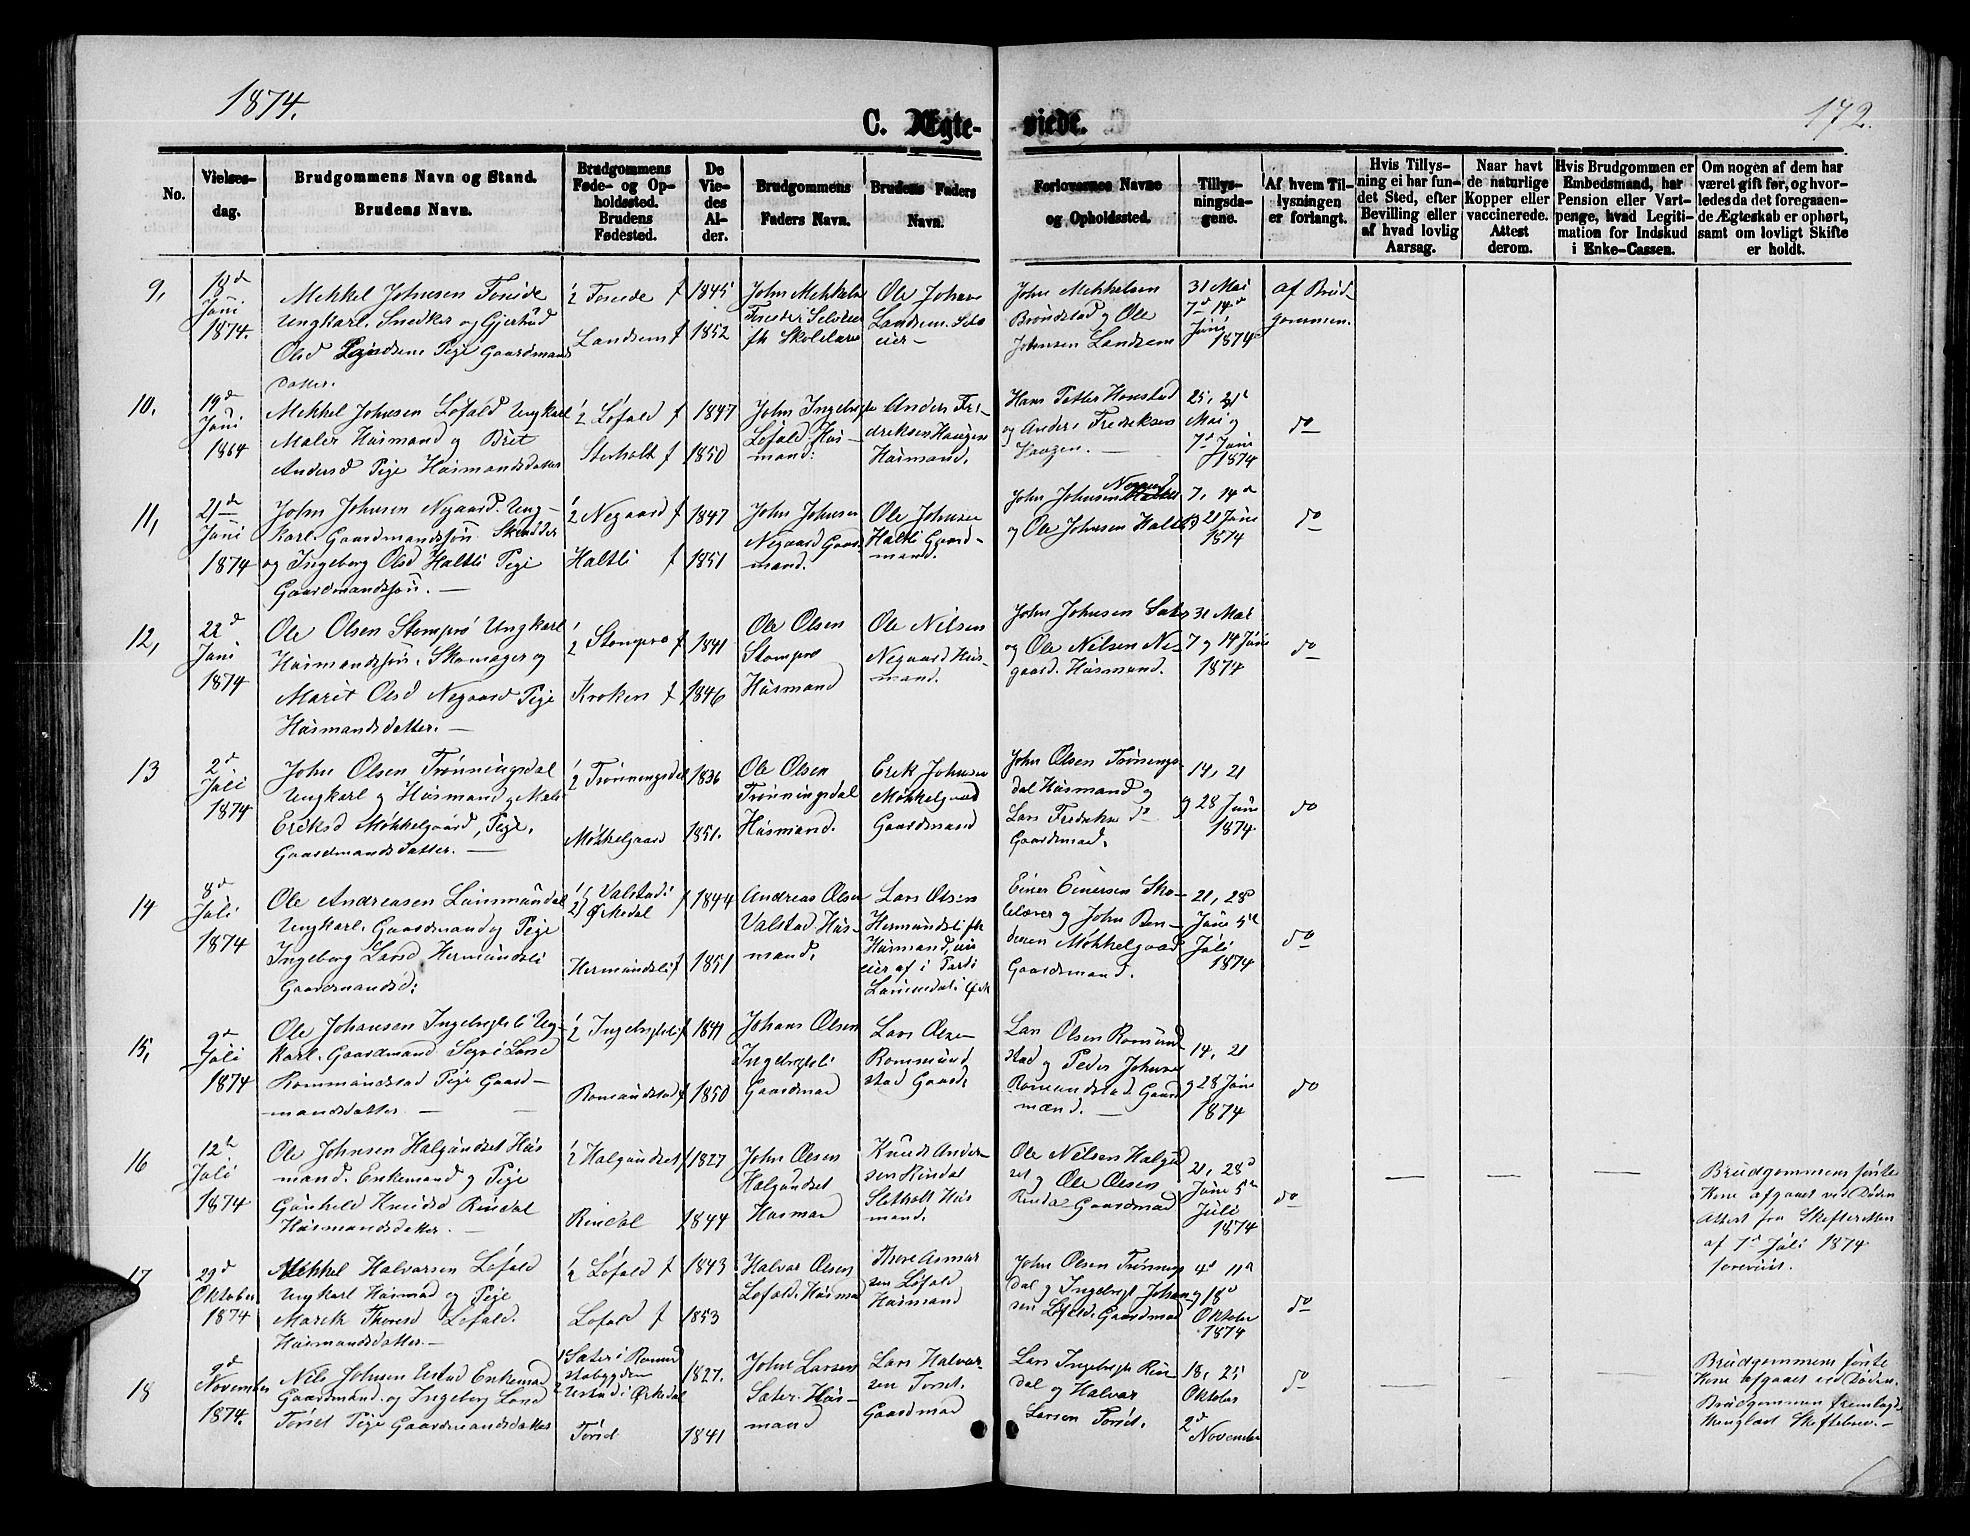 1874.
172.
C. Ægte-
viede.
No.
Vielses-
dag.
Brudgommens Navn og Stand.
Brudens Navn.
Brudgommens
Føde- og Op-
holdssted.
Brudens
Fødested.
De
Vie-
des
Al-
der.
Brudgommens
Faders Navn.
Brudens Faders
Navn.
Forlovernes Navne
og Opholdssted.
Tillys-
ningsda-
gene.
Af hvem Til-
lysningen
er forlangt.
Hvis Tillys-
ning ei har fun-
det Sted, efter
Bevilling eller
af hvad lovlig
Aarsag.
Naar havt
de naturlige
Kopper eller
vaccinerede.
Attest
derom.
Hvis Brudgommen er
Embedsmand, har
Pension eller Vart-
penge, hvad Legiti-
mation for Indskud
i Enke-Cassen.
Om nogen af dem har
været gift før, og hvor-
ledes da det foregaaen-
de Ægteskab er ophørt,
samt om lovligt Skifte
er holdt.
9,
18d
Juni
1874.
Mekkel Johnsen Foseide
Ungkarl. Snedker og Gjertrud
Olsd Pige Gaardmands
datter.
1/2 Foseide f
Landsem f
1845
1852
John Mekkelsen
Foseide Selveier
fh Skolelærer
Ole Johnsen
Landsem. Selv
eier-
John Mekkelsen
Brøndstad og Ole
Johnsen Landsem
31 Mai
7d 14d
Juni
1874
af Brud-
gommen.
10,
19d
Juni.
1864
Mekkel Johnsen Løfald Ungkarl
Maler Husmand og Brit
Andersd Pige Husmandsdatter
1/2 Løfald f
Storholt f
1847
1850
John Ingebrigts
Løfald. Hus-
mand:
Anders Fre-
driksen Haugen
Husmand.
Hans Petter Honstad
og Anders Fredriksen
Haagen. -
25, 31t
Mai og
7d Juni
1874
do
11,
21de
Juni
1874
John Johnsen Negaard. Ung-
karl. Gaardmandssøn Skrædder
og Ingeborg Olsd Haltli Pige
Gaardmandssøn. -
1/2 Negaard f
Haltli f
1847
1851
John Johnsen
Negaard Gaard-
mand.
Ole Johnsen
Haltli Gaard-
mand.
John Johnsen Negaard
og Ole Johnsen Haltli
7, 14d
21 Juni
1874
do
12,
22d
Juni
1874
Ole Olsen Stomprø Ungkarl
Husmandssøn. Skomager og
Marit Olsd Negaard Pige
Husmandsdatter. -
1/2 Stomprø f
Kroken f
1841
1846
Ole Olsen
Stomprø
Husmand
Ole Nilsen
Negaard Hus-
mand.
John Johnsen Sæter
og Ole Nilsen Ne-
gaard. Husmand.
31 Mai
7 og 14 Juni
1874
do
13
2d
Juli
1874
John Olsen Trønningsdal
Ungkarl og Husmand og Mali
Eriksd Møkkelgaard, Pige.
Gaardmandsdatter. -
1/2 Trønningsdal
Møkkelgaard
1836
1851.
Ole Olsen
Trønningsdal
Husmand.
Erik Johnsen
Møkkelgaard
Gaardmand
John Olsen Trønnings
dal Husmand og
Lars Fredriksen do
Gaardmand.
14, 21
og 28 Juni
1874.
do
14
8d
Juli
1874
Ole Andreasen
Ungkarl. Gaardmand og Pige
Ingeborg Larsd Hermundsli
Gaardmandsd:
1/2 Valstad i Ørkedal f
Hermundsli f
1844
1851
Andreas Olsen
Valstad. Hus-
mand.
Lars Olsen
Hermundsli fh
Husmand, nu
eier af i Part i
Ørk
Einer Einersen Sko-
lelærer og John Ben-
dixen Møkkelgaard
Gaardmand.
21, 28d
Juni 5te
Juli
1874
do
15,
9d
Juli
1874
Ole Johansen Ingebrigtsli Ung-
karl. Gaardmand Larsd
Rommundstad Pige Gaard-
mandsdatter. - -
1/2 Ingebrigtsli f
Romundstad f
1841
1850
Johans Olsen
Ingebrigtsli
Gaardmand
Lars Olsen
Rommund
stad Gaard.
Lars Olsen Romund
stad og Peder Johnsen
Romundstad. Gaard
mænd. -
14, 21
og 28 Juni
1874
do
16
12te
Juli
1874
Ole Johnsen Halgundset Hus
mand. Enkemand og Pige
Gunheld Knudsd Rindal
Husmandsdatter. -
1/2 Halgundset f
Rindal
1827
1844
John Olsen
Halgundset
Husmand
Knud Ander-
sen Rindal
Sletholt Hus
mand.
Ole Nilsen Halgund
set og Ole Olsen
Rindal Gaardmænd
21, 28d
Juni 5te
Juli
1874
do
Brudgommens første
Kone afgaaet ved Døden
Attest fra Skifteretten
af 7d Juli 1874
forevist.
17
29d
Oktober
1874
Mekkel Halvorsen Løfald
Ungkarl Husmand og Pige
Marit Thoresd Løfald.
Husmandsdatter. -
1/2 Løfald f
Løfald f
1843
1853
Halvor Olsen
Løfald. Husmand
Thore Asmar
sen Løfald
Husmand
John Olsen Trønnings
dal og Ingebrigt Johan-
sen Løfald. Gaardmænd
4d 11te
og 18d
Oktober
1874
do
18
9d
November
1874.
Nils Johnsen Ustad Enkemand
Gaardmand. og Ingeborg Larsd
Torset Pige Gaardmandsdatter
Sæter i Romund
stadbygden
Ustad i Ørkedal
Torset
1827.
1841
John Larsen
Sæter. Hus-
mand
Lars Halvor-
sen Torset.
Gaardmand
Lars Ingebrigts Rin
dal og Halvor
Larsen Torset.
18, 25
Oktober
2d
November
do
Brudgommens første
Kone afgaaet ved Døden.
Brudgommen fremlagde
Skiftebrev. -